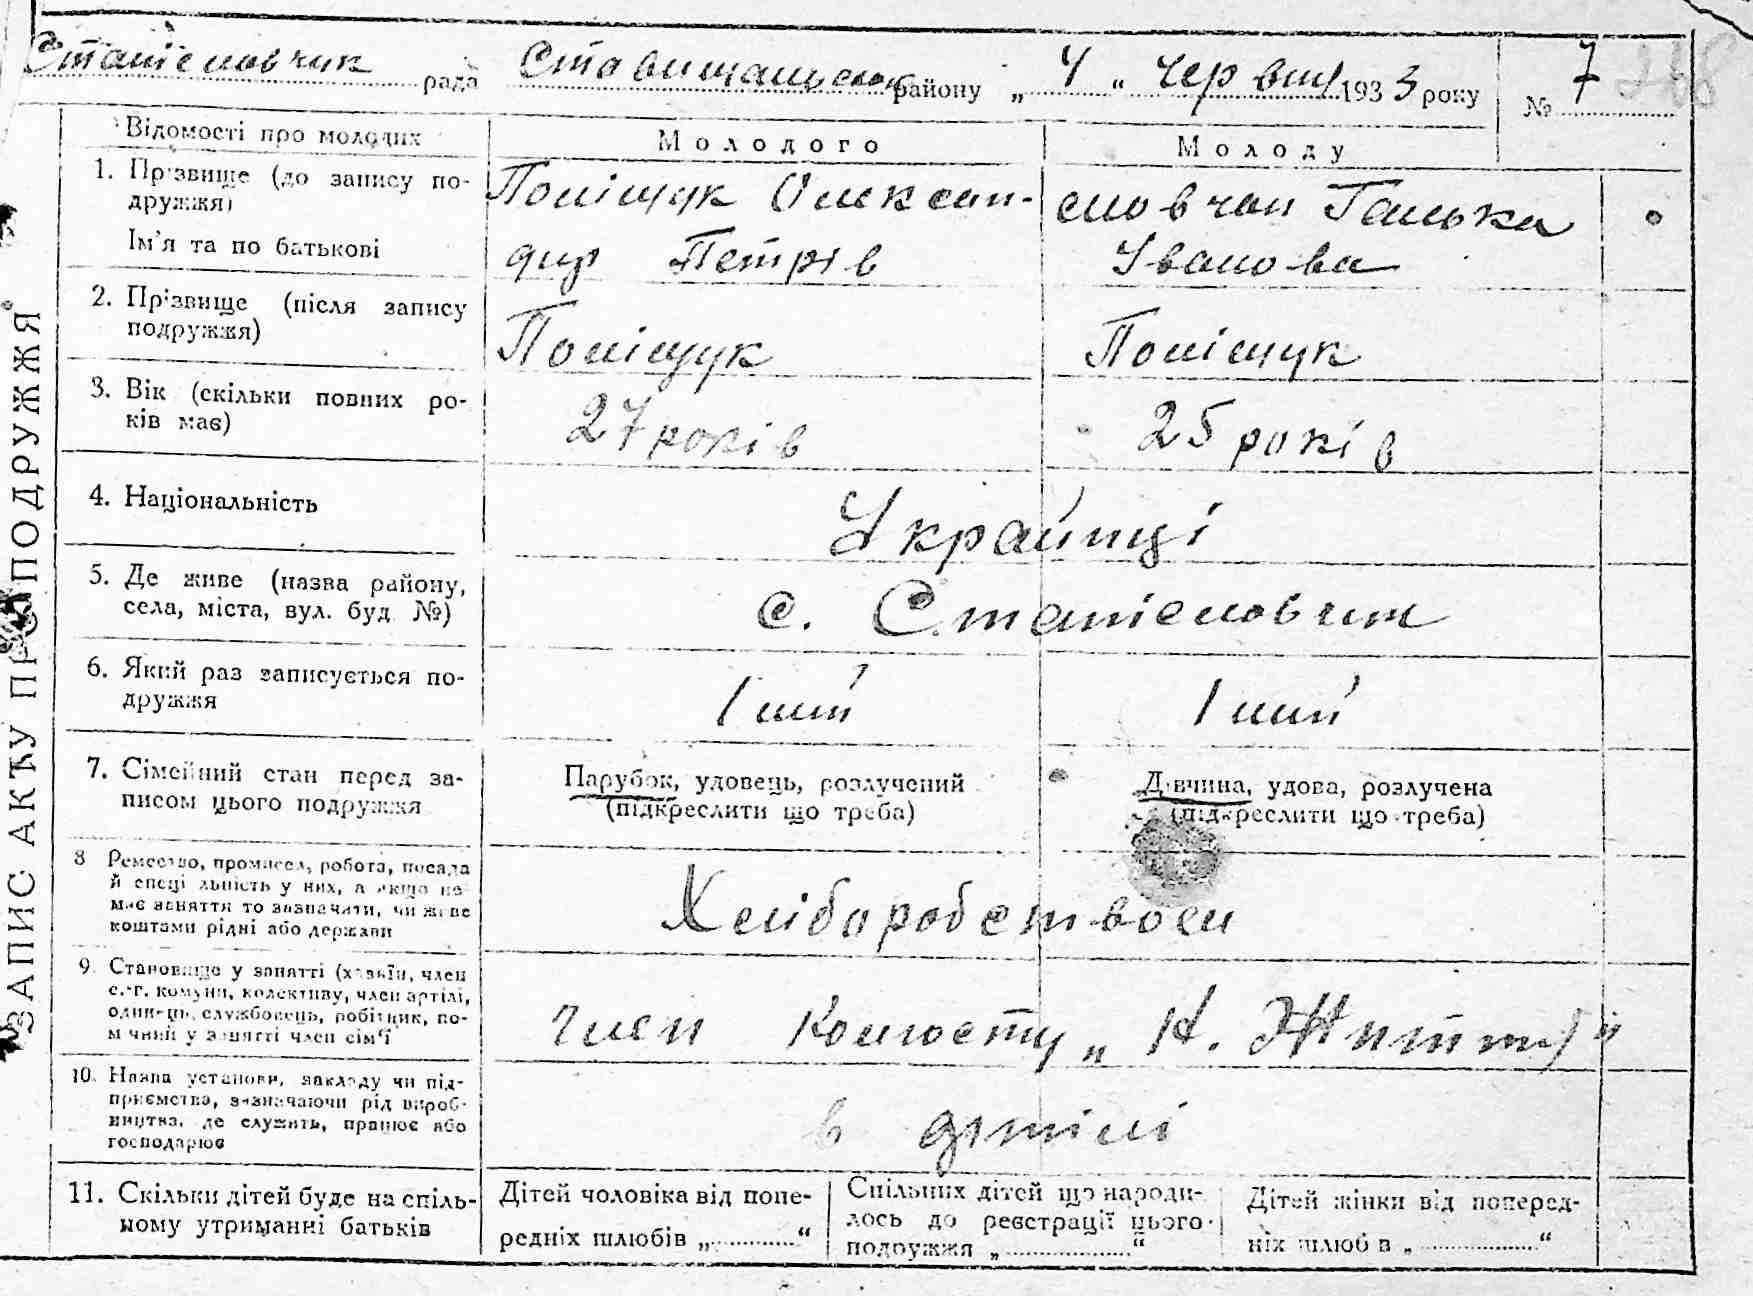 Станіславчик рада Ставищанського району „ 4 “ Червня 1933 року № 7 268
ЗАПИС АКТУ ПРО ПОДРУЖЖЯ
Відомості про молодих
Молодого
Молоду
1. Прізвище (до запису по-
дружжя)
Ім'я та по батькові
Поліщук Олексан-
др Петрів
Словчан Ганька
Іванова
2. Прізвище (після запису
подружжя)
Поліщук
Поліщук
3. Вік (скільки повних ро-
ків має)
27 років
25 років
4. Національність
Украйнці
5. Де живе (назва району,
села, міста, вул. буд. №)
с. Станіславчик
6. Який раз записується по-
дружжя
1ший
1ший
7. Сімейний стан перед за-
писом цього подружжя
Парубок, удовець, розлучений
(підкреслити що треба)
Дівчина, удова, розлучена
(підкреслити що треба)
8 Ремество, промисел, робота, посада
й спеціяльність у них, а якщо не
має заняття то зазначити, чи живе
коштами рідні або держави
Хліборобством
9. Становище у занятті (хазяїн, член
с.-г. комуни, колективу, член артілі,
одинець, службовець, робітник, по-
мічний у занятті член сім'ї
член Колгоспу „Н. Життя“
10. Назва установи, закладу чи під-
приємства, зазначаючи рід вироб-
ництва, де служить, працює або
господарює
в артілі
11. Скільки дітей буде на спіль-
ному утриманні батьків
Дітей чоловіка від попе-
редніх шлюбів „ “
Спільних дітей що народи-
лось до реєстрації цього
подружжя „ “
Дітей жінки від поперед-
ніх шлюбів „ “